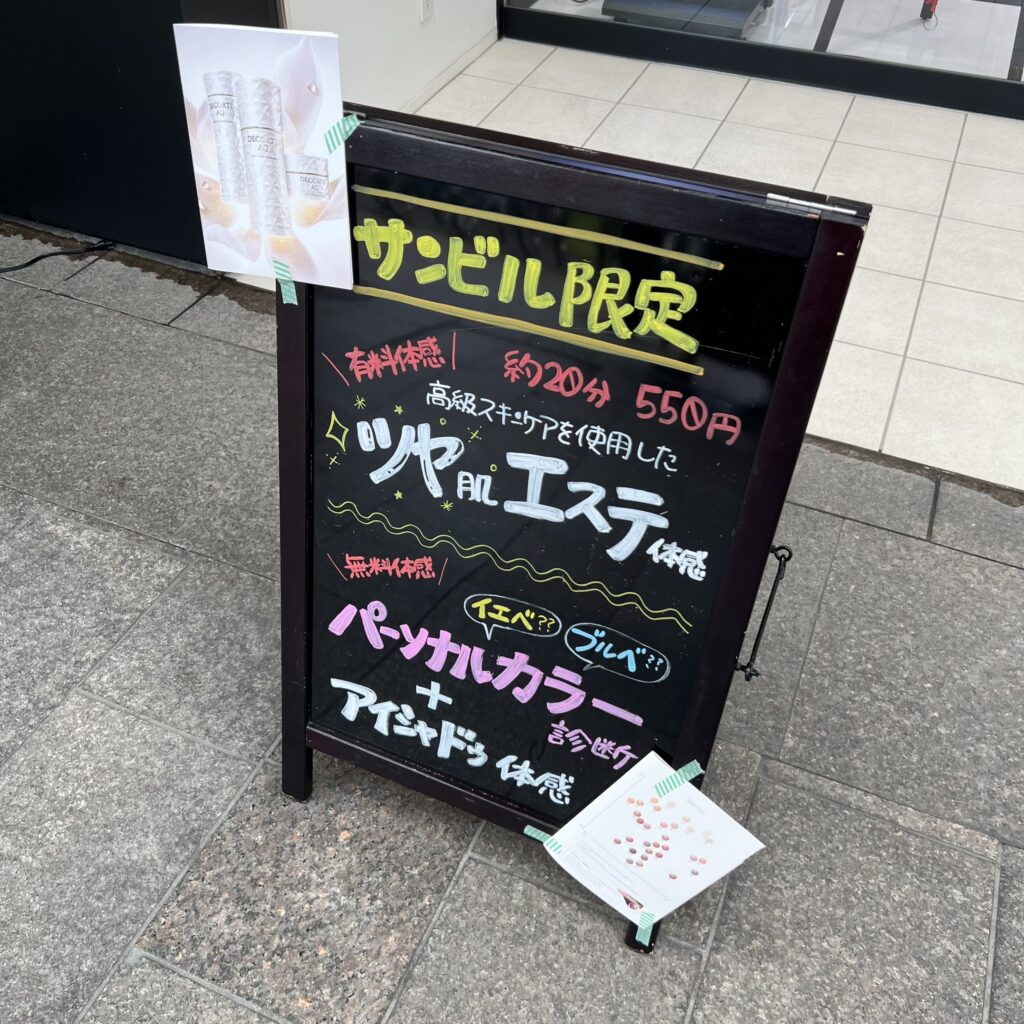 DECORTÉ
AQ
DECORTÉ
AQ
DECORTÉ
AQ
サンビル限定
\有料体感/ 約20分 550円
高級スキンケアを使用した
ツヤ肌エステ体感
\無料体感/
イエベ??
ブルベ??
パーソナルカラー
診断
+
アイシャドウ体感